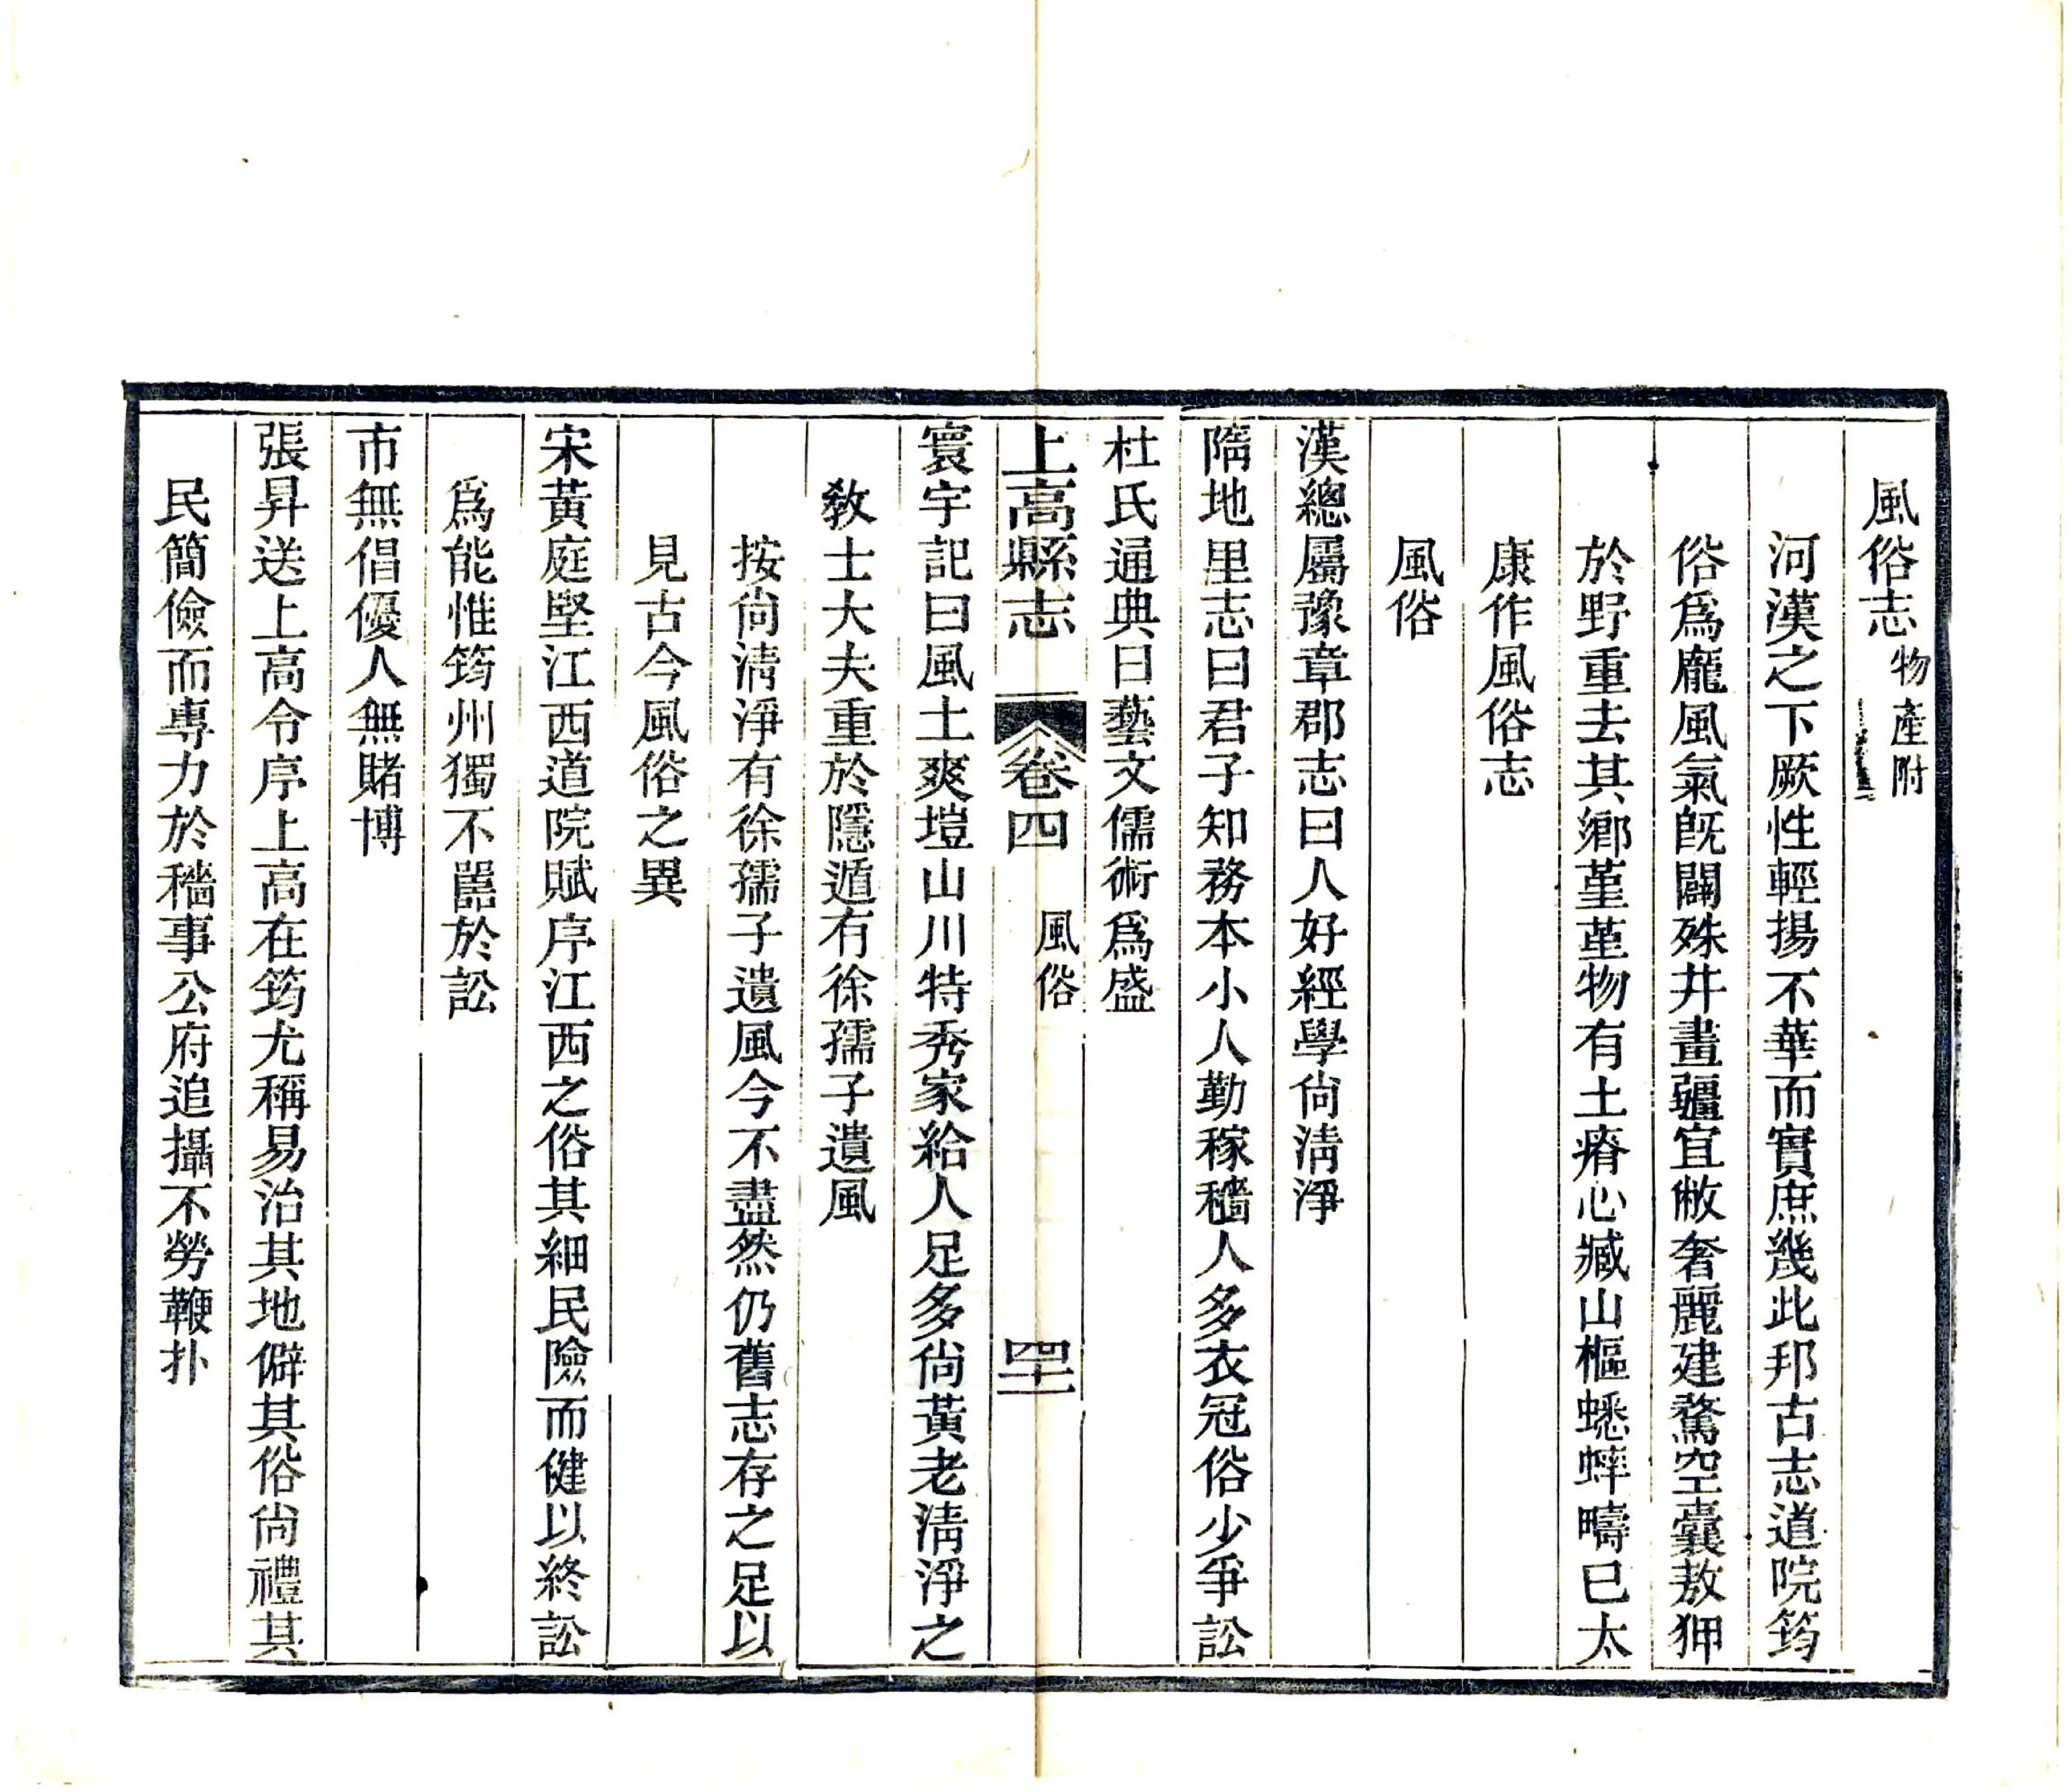 風俗志物產附
河漢之下厥性輕揚不華而實庶幾此邦古志道院筠
俗爲龐風氣旣闢殊井畫疆宜敝奢麗建鶩空囊敖狎
於野重去其鄕堇堇物有土瘠心臧山樞蟋蟀疇已太
康作風俗志
風俗
漢總屬豫章郡志曰人好經學尙淸淨
隋地里志曰君子知務本小人勤稼穡人多衣冠俗少爭訟
杜氏通典曰藝文儒術爲盛
上高縣志 卷四 風俗 四十二
寰宇記曰風土爽塏山川特秀家給人足多尙黃老淸淨之
敎士大夫重於隱遁有徐孺子遺風
按尙淸淨有徐孺子遺風今不盡然仍舊志存之足以
見古今風俗之異
宋黃庭堅江西道院賦序江西之俗其細民險而健以終訟
爲能惟筠州獨不嚚於訟
市無倡優人無賭博
張昇送上高令序上高在筠尤稱易治其地僻其俗尙禮其
民簡儉而專力於穡事公府追攝不勞鞭扑